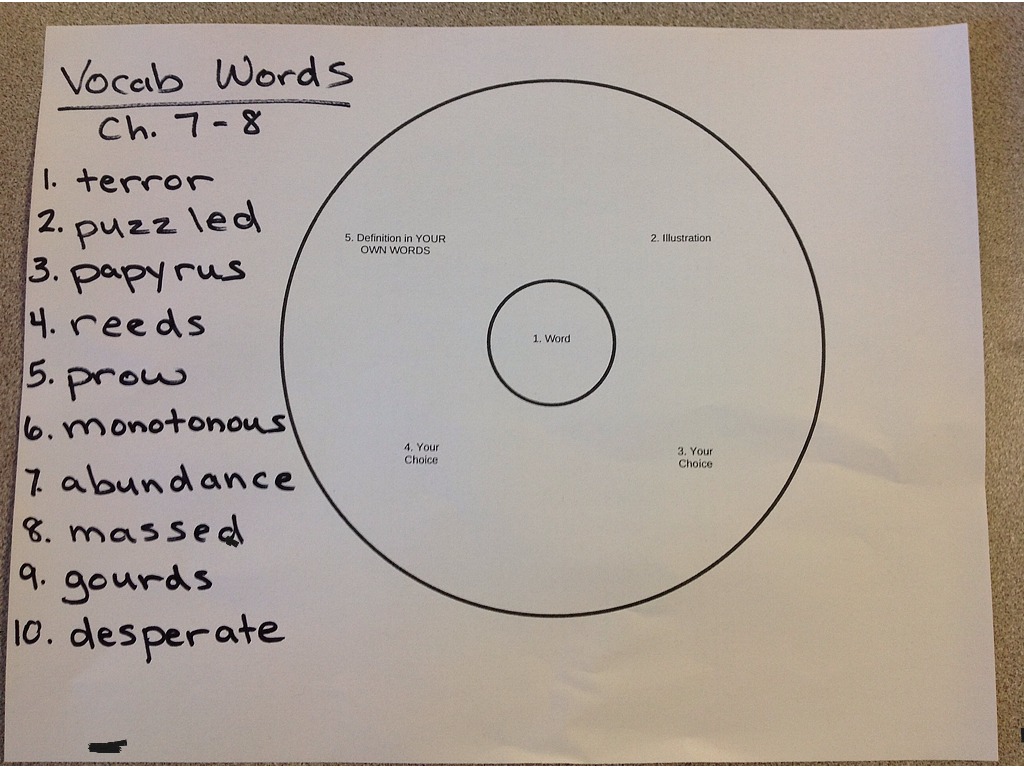 Vocab Words
Ch. 7-8
1. terror
2. puzzled
3. papyrus
4. reeds
5. prow
6. monotonous
7. abundance
8. massed
9. gourds
10. desperate
5. Definition in YOUR
OWN WORDS
2. Illustration
1. Word
4. Your
Choice
3. Your
Choice